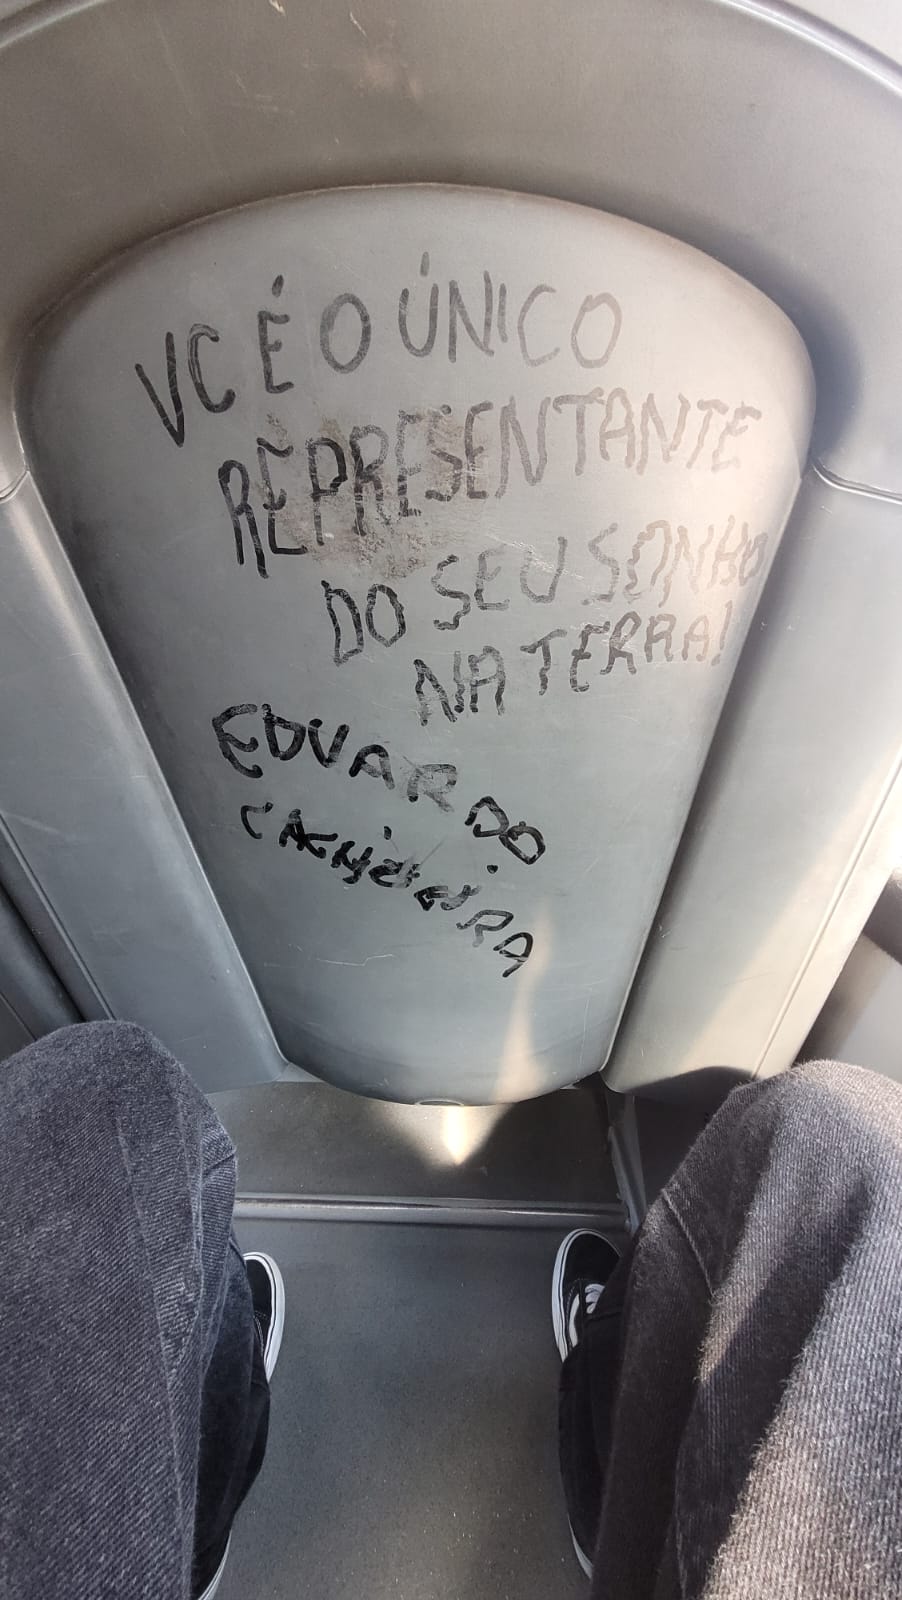 VC É O ÚNICO
REPRESENTANTE
DO SEU SONHO
NA TERRA!
EDUARDO